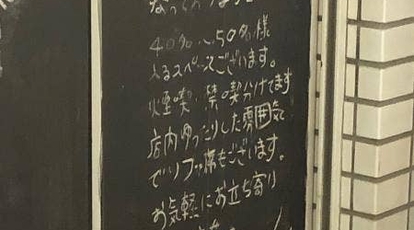 なっております。
40名〜50名様
入るスペースございます。
煙喫・禁喫分けてます
店内ゆったりした雰囲気
でソファ席もございます。
お気軽にお立ち寄り